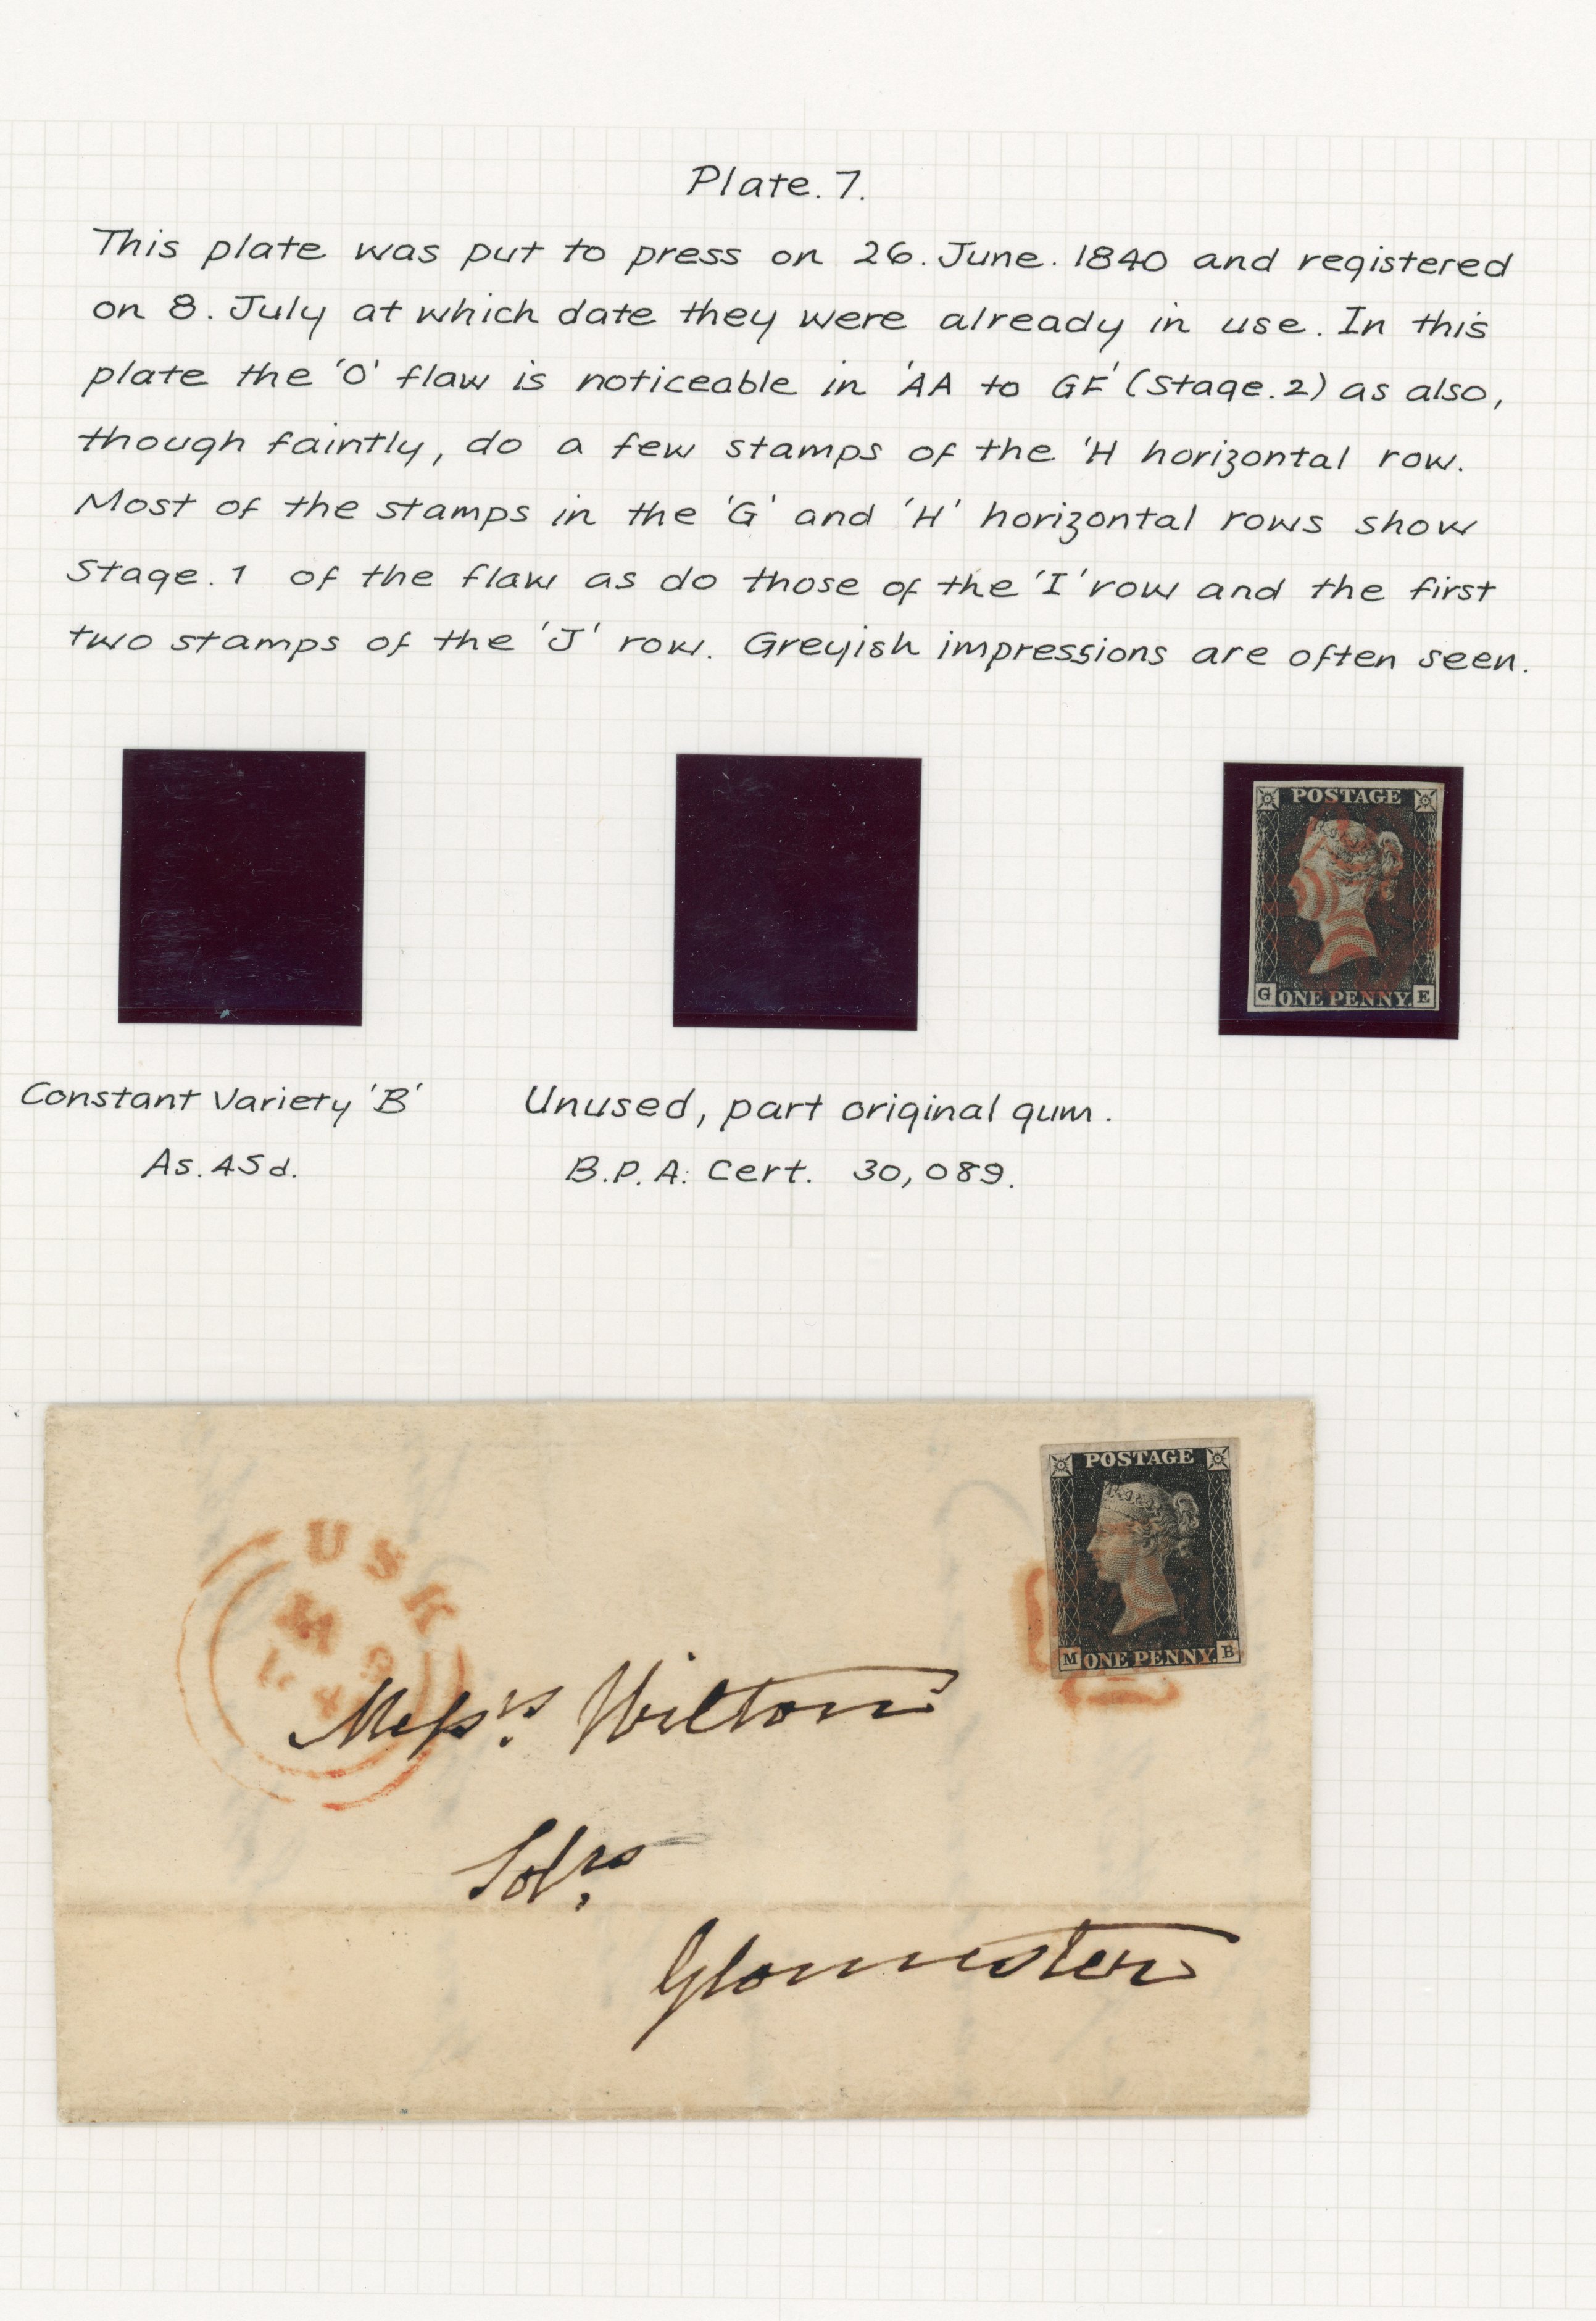 Plate. 7.
This plate was put to press on 26. June. 1840 and registered
on 8. July at which date they were already in use. In this
plate the 'O' flaw is noticeable in 'AA to GF' (Stage. 2) as also,
though faintly, do a few stamps of the 'H horizontal row.
Most of the stamps in the 'G' and 'H' horizontal rows show
Stage. 1 of the flaw as do those of the 'I' row and the first
two stamps of the 'J' row. Greyish impressions are often seen.
POSTAGE
G ONE PENNY. E
Constant Variety 'B'
As. 45d.
Unused, part original gum.
B.P.A. Cert. 30,089.
POSTAGE
M ONE PENNY. B
USK
Messrs. Wilton
Solrs.
Gloucester